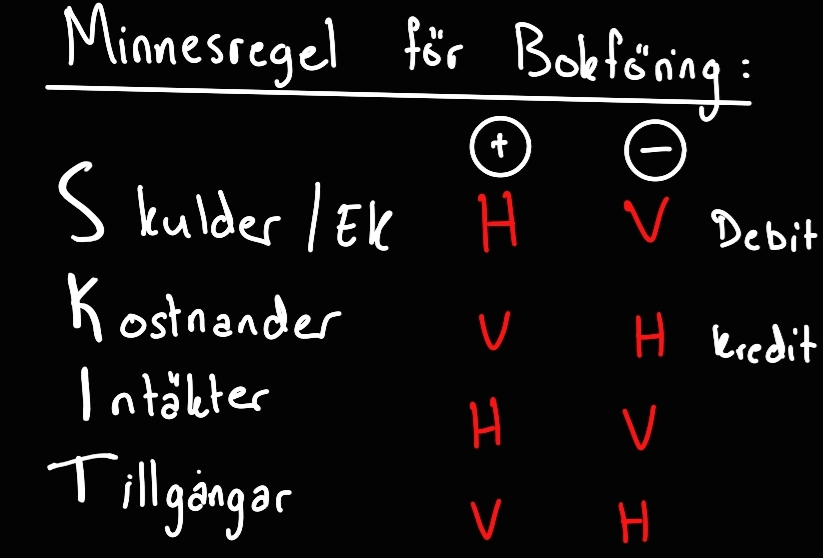 Minnesregel för Bokföring:
+ −
Skulder/EK H V Debit
Kostnander V H kredit
Intäkter H V
Tillgångar V H